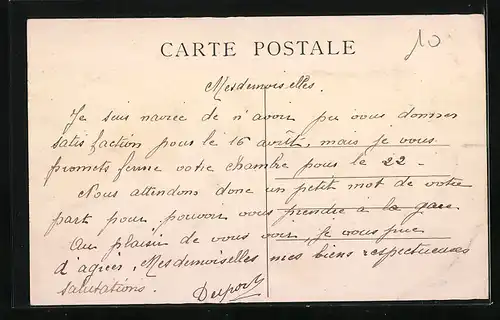 CARTE POSTALE
10
Mesdemoiselles.
Je suis navrée de n'avoir pu vous donner
satisfaction pour le 16 avrût, mais je vous
promets ferme votre chambre pour le 22 -
Nous attendons donc un petit mot de votre
part pour pouvoir vous prendre à la gare
Au plaisir de vous voir, je vous prie
d'agréer, Mesdemoiselles mes biens respectueuses
salutations.